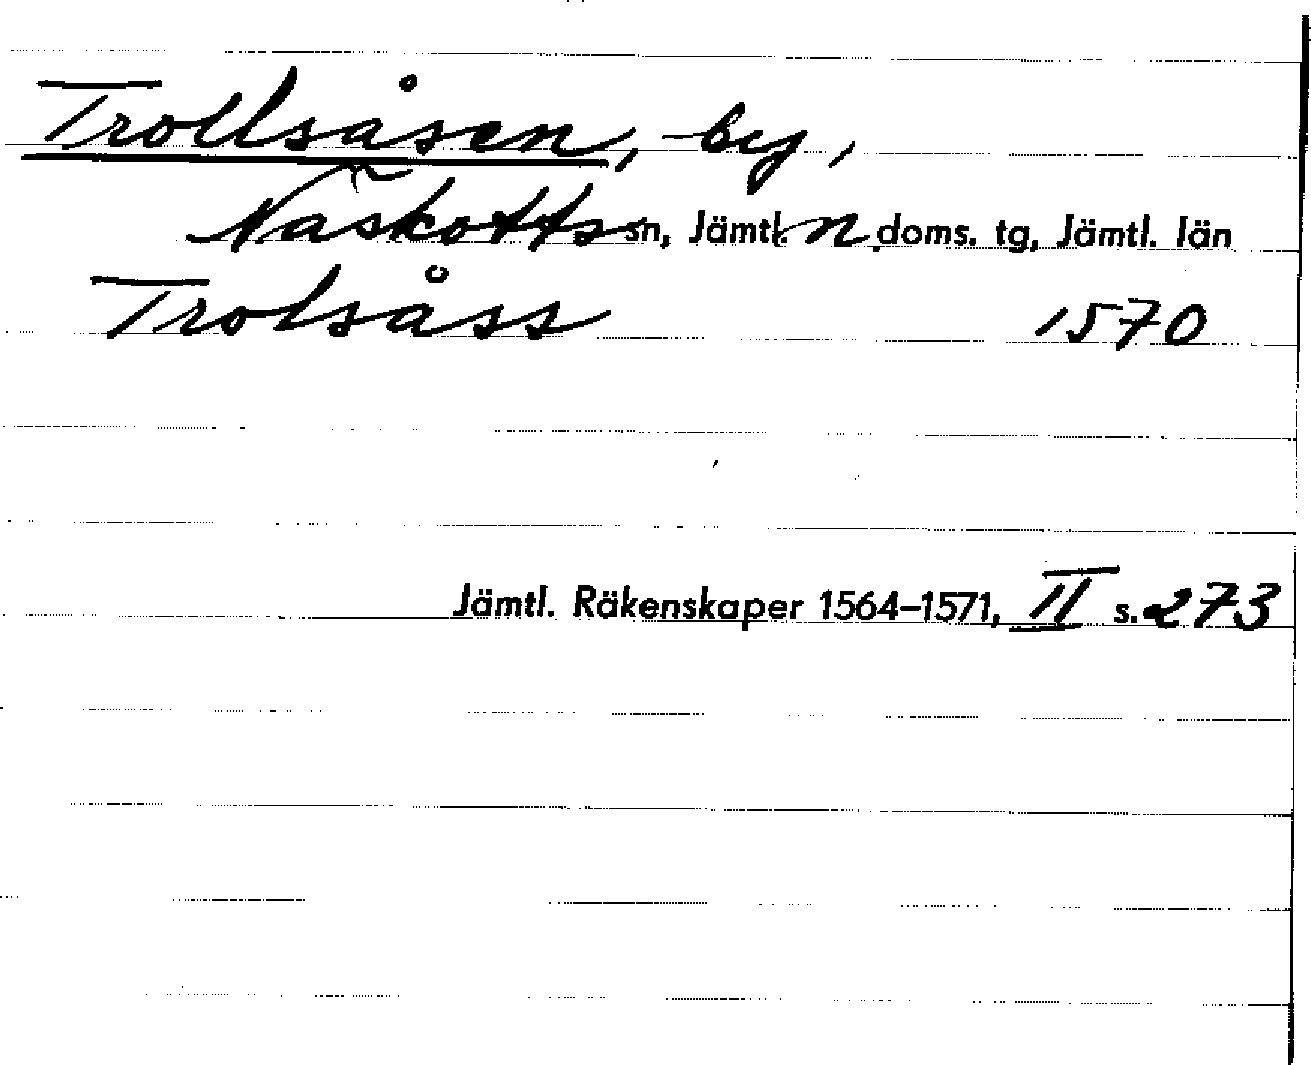 Trollsåsen, by,
Näskotts sn, Jämtl. n. doms. tg, Jämtl. län
Trolsåss 1570
Jämtl. Räkenskaper 1564–1571, II s. 273